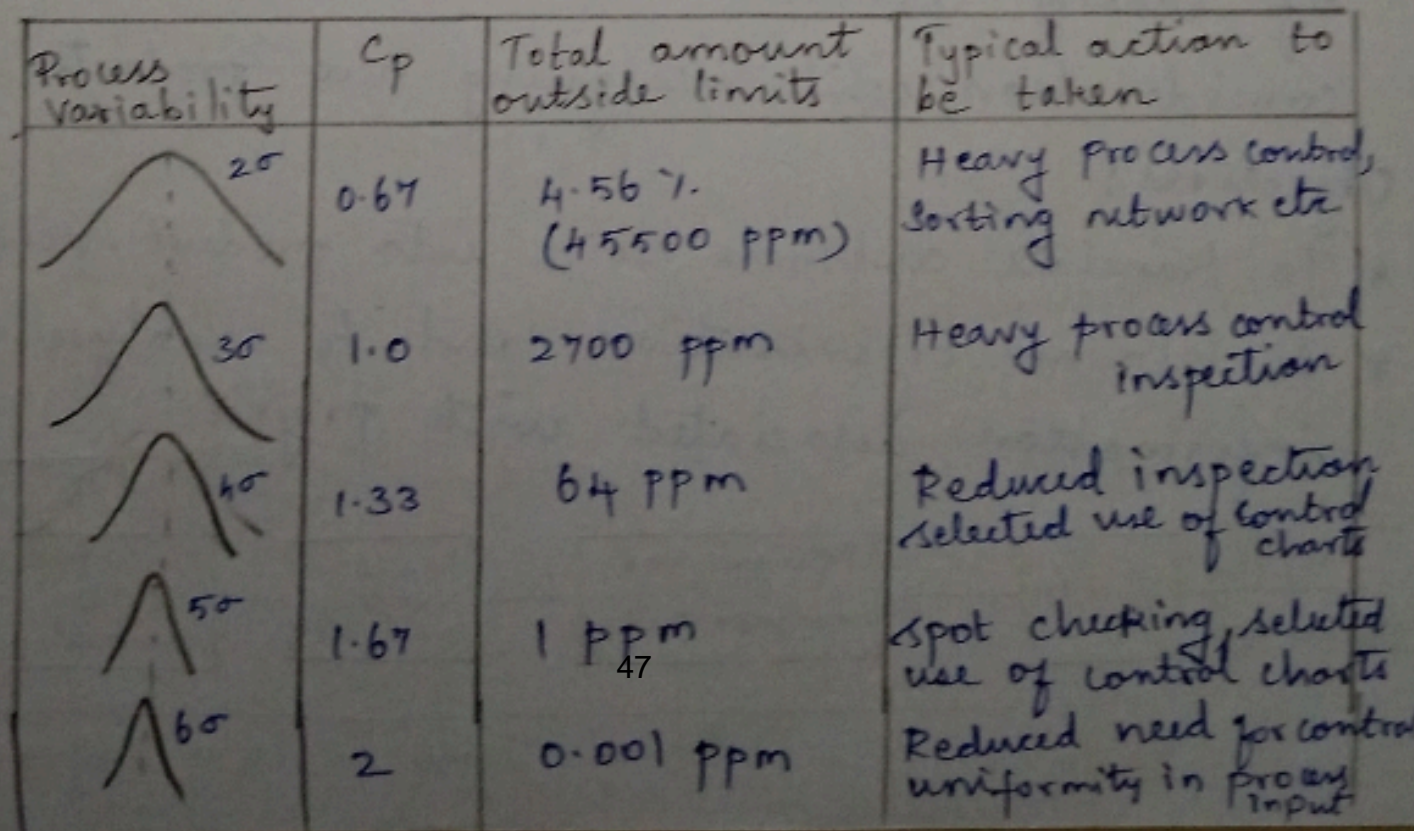 Process variability
Cp
Total amount outside limits
Typical action to be taken
2σ
0.67
4.56 %.
(45500 ppm)
Heavy process control,
Sorting network etc
3σ
1.0
2700 ppm
Heavy process control
inspection
4σ
1.33
64 ppm
Reduced inspection
selected use of control
charts
5σ
1.67
1 ppm
47
spot checking, selected
use of control charts
6σ
2
0.001 ppm
Reduced need for control
uniformity in process
input